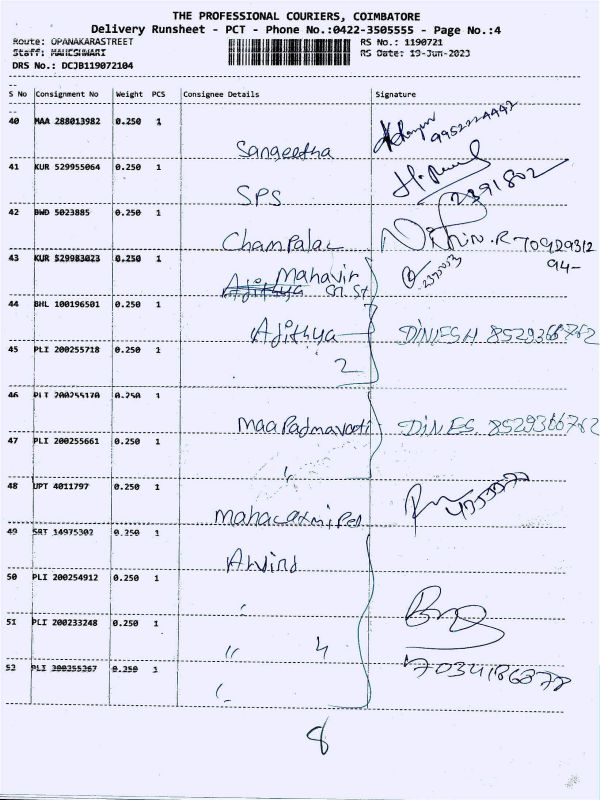 THE PROFESSIONAL COURIERS, COIMBATORE
Delivery Runsheet - PCT - Phone No.:0422-3505555 - Page No.:4
Route: OPANAKARASTREET RS No.: 1190721
Staff: MAHESHWARI RS Date: 19-Jun-2023
DRS No.: DCJB119072104
S No Consignment No Weight PCS Consignee Details Signature
40 MAA 288013982 0.250 1
Sangeetha
41 KUR 529955064 0.250 1
SPS 2391802
42 BWD 5023885 0.250 1
Champalal Nithin.R
43 KUR 529983023 0.250 1 94-
Mahavir
44 BHL 100196501 0.250 1
Ajithya DINESH 8529366762
45 PLI 200255718 0.250 1
2
46 PLI 200255170 0.250 1
Maa Padmavati DINES 8529366762
47 PLI 200255661 0.250 1
"
48 UPT 4011797 0.250 1
49 SRT 14975302 0.250 1
Arvind
50 PLI 200254912 0.250 1
"
51 PLI 200233248 0.250 1
" 4
52 PLI 200255267 0.250 1
"
8